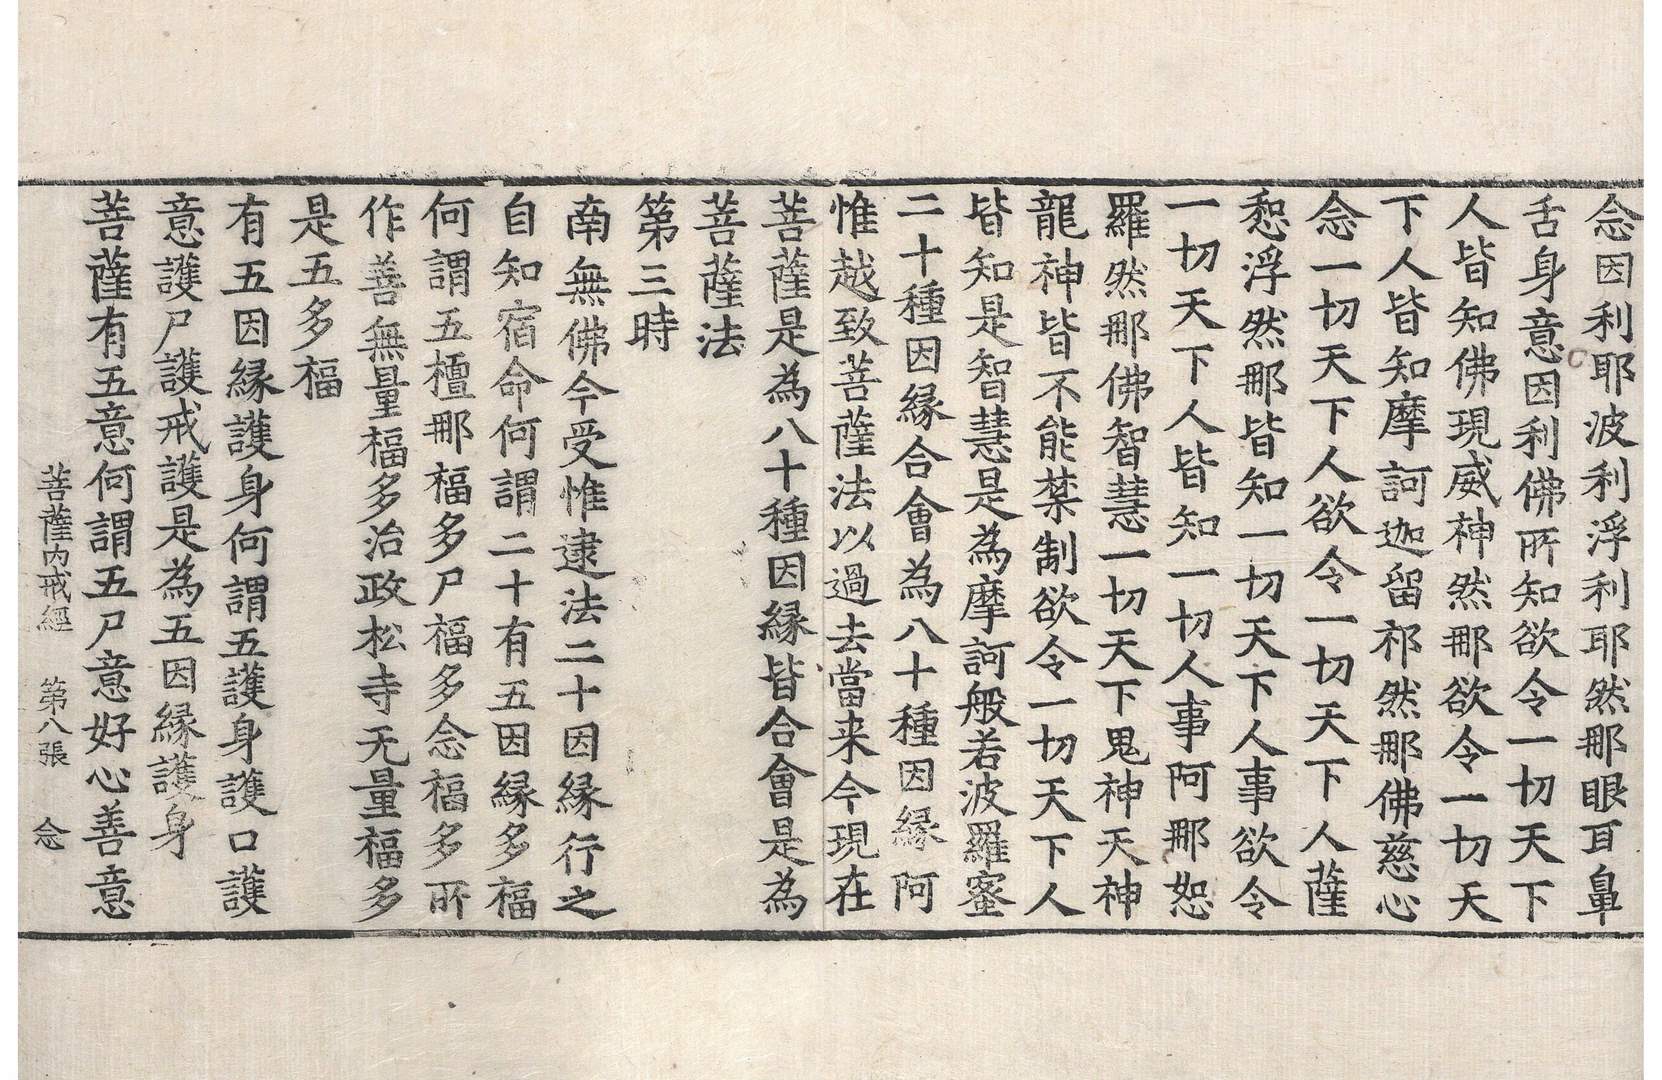 念因利耶波利浮利耶然那眼耳鼻
舌身意因利佛所知欲令一切天下
人皆知佛現威神然那欲令一切天
下人皆知摩訶迦留祁然那佛慈心
念一切天下人欲令一切天下人薩
惒浮然那皆知一切天下人事欲令
一切天下人皆知一切人事阿那恕
羅然那佛智慧一切天下鬼神天神
龍神皆不能禁制欲令一切天下人
皆知是智慧是為摩訶般若波羅蜜
二十種因縁合會為八十種因縁阿
惟越致菩薩法以過去當来今現在
菩薩是為八十種因縁皆合會是為
菩薩法
第三時
南無佛今受惟逮法二十因縁行之
自知宿命何謂二十有五因縁多福
何謂五檀那福多尸福多念福多所
作善無量福多治政松寺无量福多
是五多福
有五因縁護身何謂五護身護口護
意護尸護戒護是為五因縁護身
菩薩有五意何謂五尸意好心善意
菩薩内戒經　第八張　念